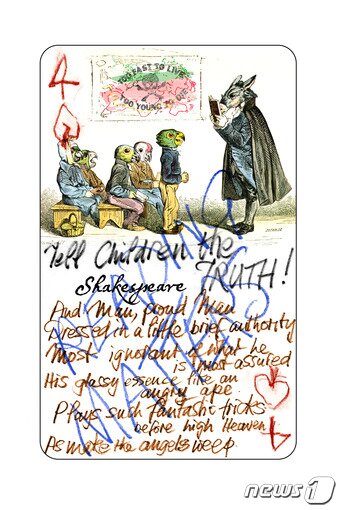 4
TOO FAST TO LIVE
TOO YOUNG TO DIE
Tell Children the
TRUTH!
READING
MATTERS
Shakespeare
And Man, proud Man
Dressed in a little brief authority
Most ignorant of what he
is most assured
His glassy essence like an
angry ape
Plays such fantastic tricks
before high Heaven
As make the angels weep
4
news1